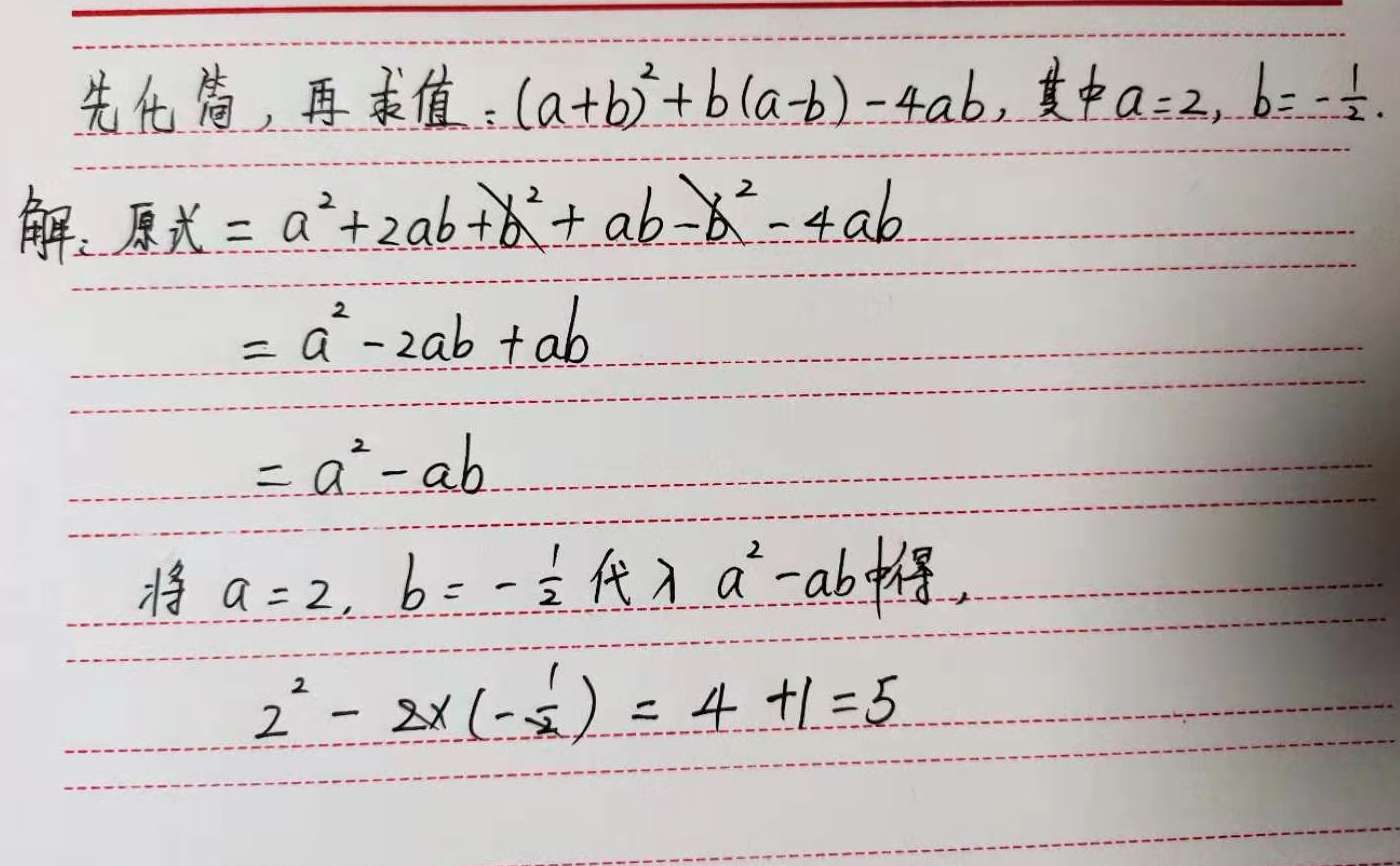 先化简，再求值：(a+b)²+b(a-b)-4ab，其中a=2，b=-1/2.
解：原式=a²+2ab+b²+ab-b²-4ab
=a²-2ab+ab
=a²-ab
将a=2，b=-1/2代入a²-ab中得，
2²-2×(-1/2)=4+1=5